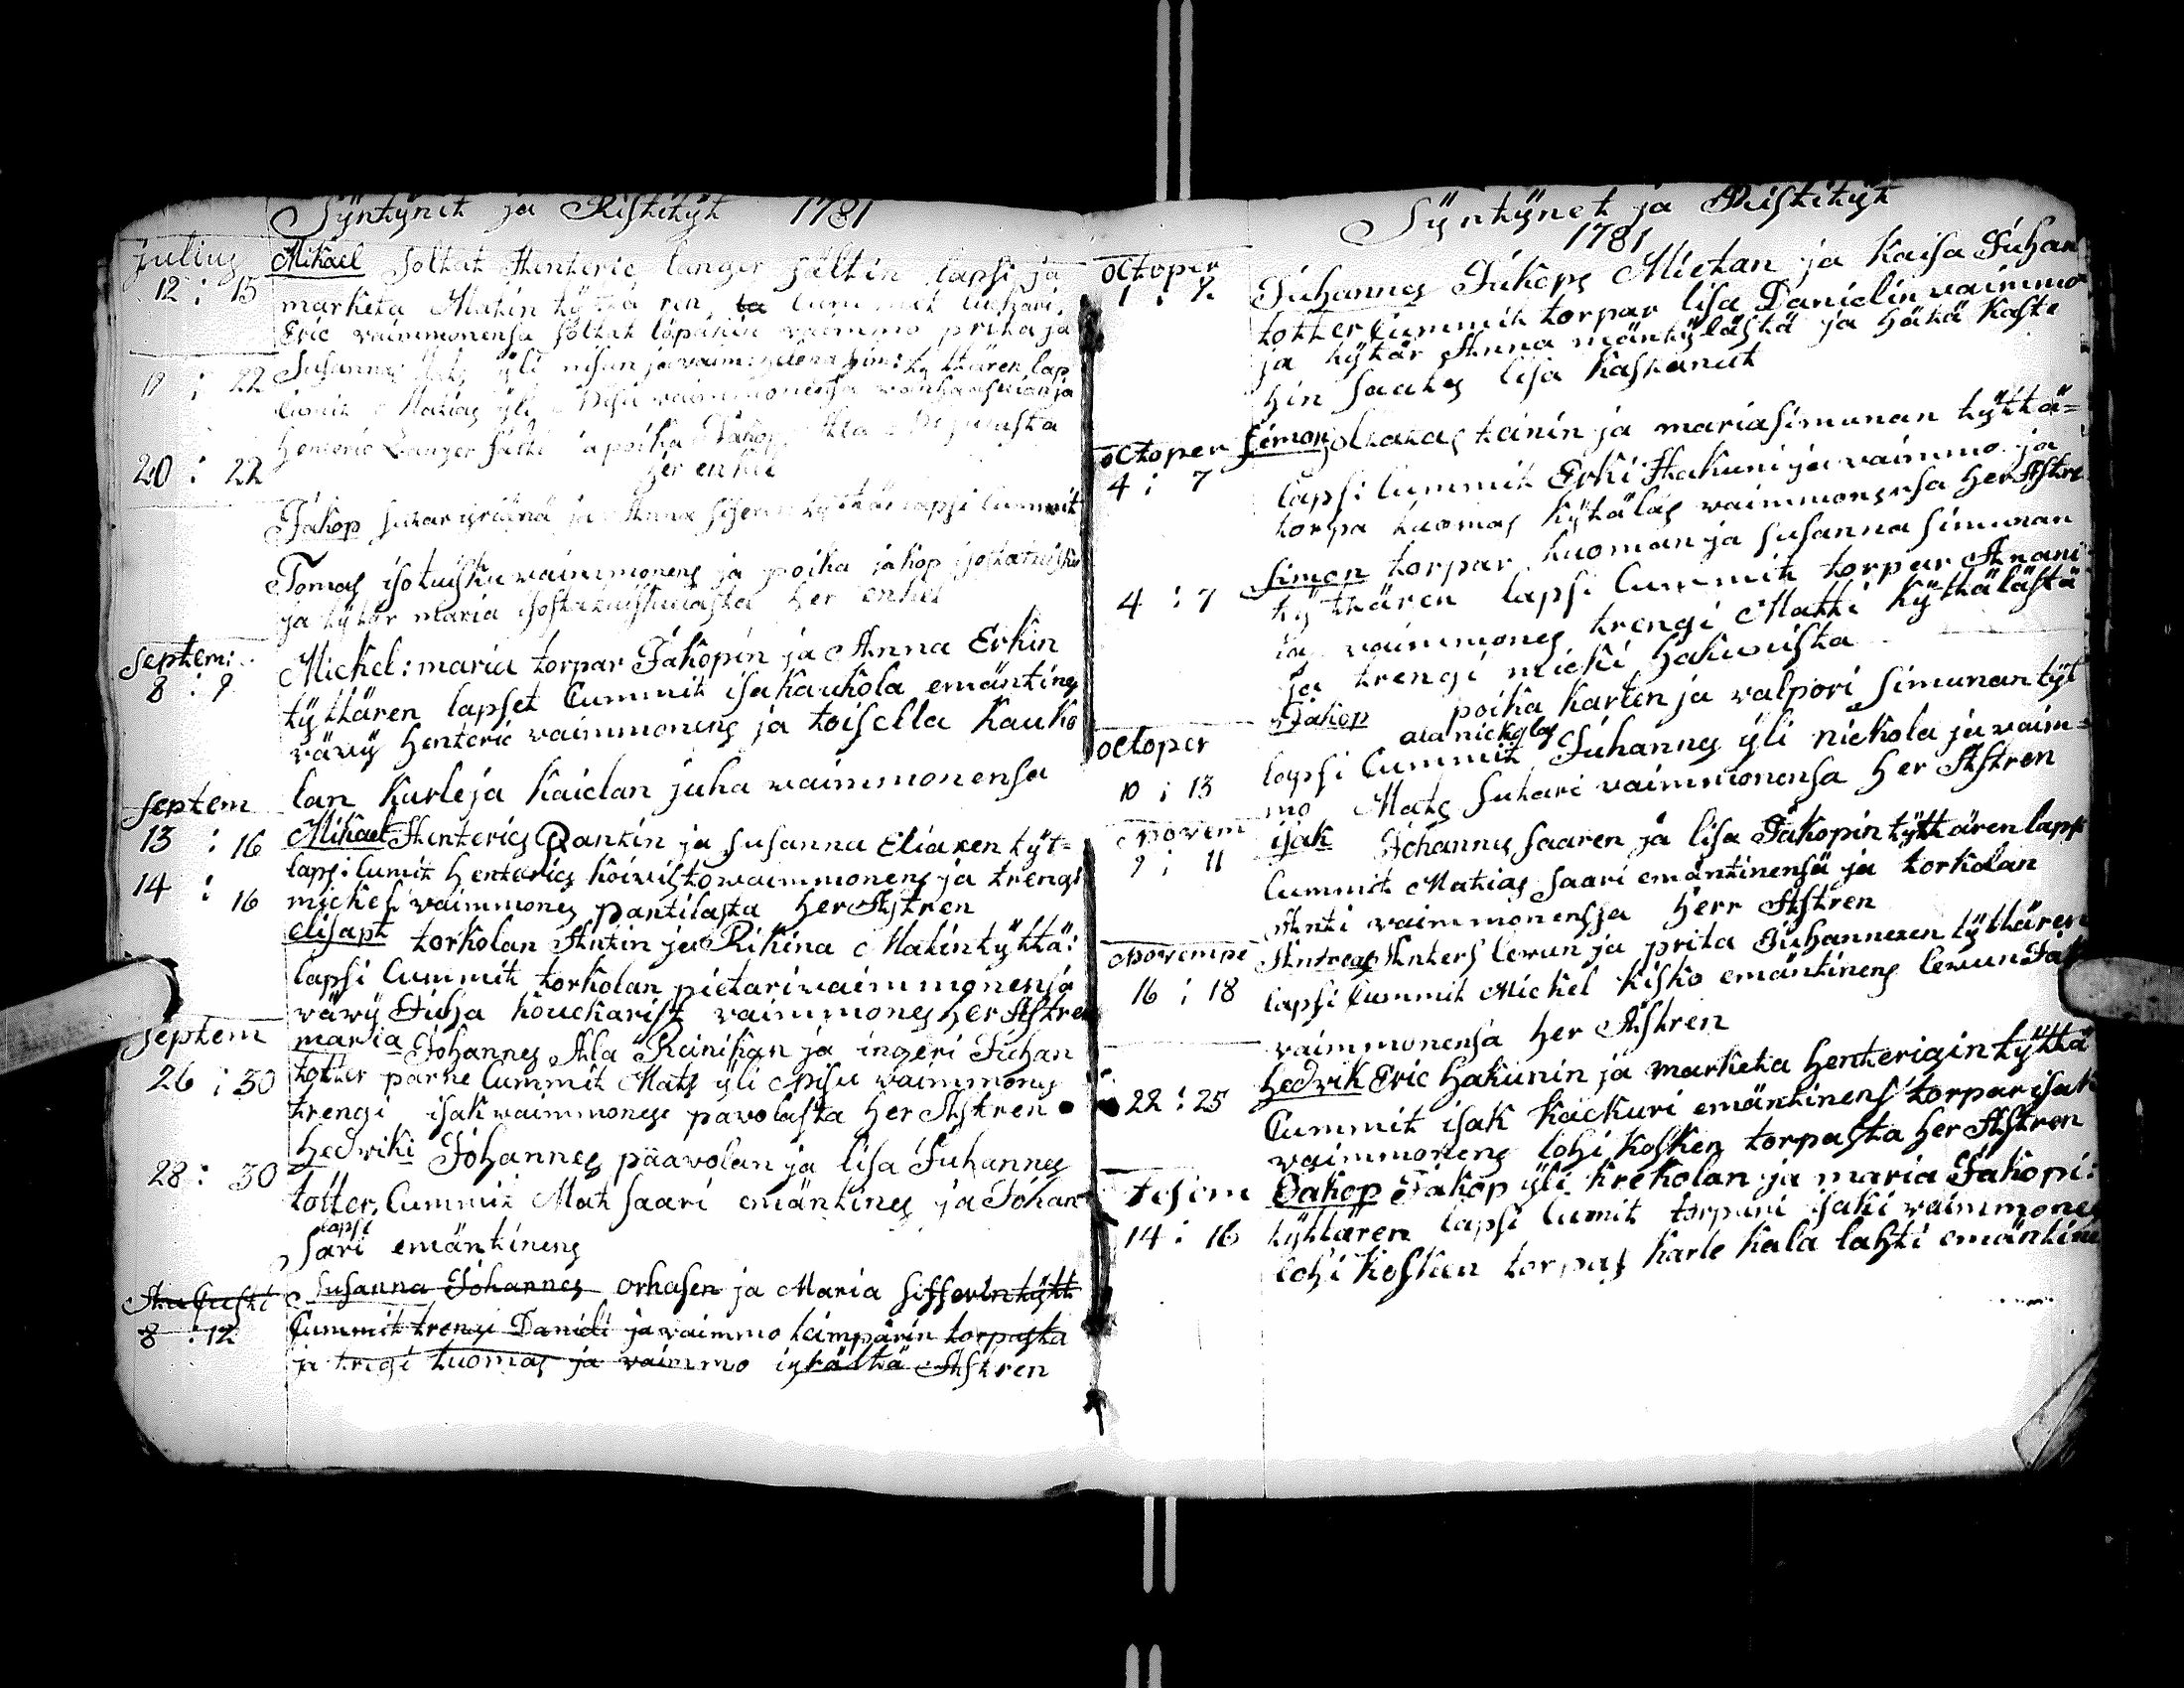 Syntynit ja Ristityt 1781
julius Mikael soltat Henteric langer sältin lapsi ja
12 : 15 marketa Matin tyttä ren, ta Cummit
Eric vaimmonensa soltat vaimmo prita ja
Susanna yli nisun ja lap
12 : 22 Cumit Matias yli Nisu vaimmonensa
Henteric Langer ja poika Jakop
20 : 22 her enkel
Jakop ja Anna lapsi Cummit
Tomas isotuisku vaimmonens ja poika jakop
ja tytär maria her enkel
Septem: Michel: maria torpar Jakopin ja Anna Erkin
8 : 9 tyttären lapset Cummit isakaukola emäntins
vävy Henteric vaimmonens ja toisella Kauko
lan Karle ja Kaidan juha vaimmonensa
Septem
13 : 16 Mikael Henterics Pantin ja susanna Eliaxen tyt=
lapsi Cumit Henterics koivisto vaimmonens ja trengi
14 : 16 michel vaimmones pantilasta her Astren
elisapt torkolan Antin ja Rikina Matin tyttä:
lapsi Cummit torkolan pietari vaimmonensa
vävy Juha kouckarist vaimmones her Astren
Septem maria Johannes Ala Reinikan ja ingeri Juhan
26 : 30 totter parne Cummit Mats yli Nisu vaimmons
trengi isak vaimmonese pavolasta her Astren
28 : 30 Hedviki Johannes päavolan ja lisa Juhannes
totter, Cummit Mat saari emäntines ja Johan
lapsi
sari emäntinens
Aucusti Susanna Johannes orhasen ja Maria sifferin tytt
8 : 12 Cummit trengi Daniel ja vaimmo teimpärin torpasta
ja tregi tuomas ja vaimmo Astren
Syntynet ja Ristityt
1781
octoper
1 : 7 Juhannes Jakops Mietan ja Kaisa Juhan
totter Cummit torpar lisa Danielin vaimmo
ja tytär Anna mäntylästä ja hätä Kaste
hin saates lisa kastanut
octoper Simon Matias tanin ja maria simunan tyttä=
4 : 7 lapsi Cummit Erki Hakuni ja vaimmo ja
torpa tuomas kytälas vaimmonensa her Astre
Simon torpar tuoman ja susanna simunan
4 : 7 tyttären lapsi Cummit torpar Anani
ia vaimmones trengi Matti kyttälästä
ja trengi micki hakunista
Jakop poika karlen ja valpori simunan tyt
octoper ala nickolas
lapsi Cummit Juhannes yli nickola ja vaim=
10 : 13 mo Mats suhari vaimmonensa her Astren
Novem isak Johannes saaren ja lisa Jakopin tyttären laps
9 : 11 Cummit Matias saari emäntinensä ja torkolan
Anti vaimmonensa Herr Astren
Novempe Antreas Anters levun ja prita Juhannexen tyttären
16 : 18 lapsi Cummit Mickel kisko emäntinens levun Jak
vaimmonensa her Astren
22 : 25 Hedvik Eric hakunin ja marketa henterigin tyttä
Cummit isak kackuri emäntinens torpar isak
vaimmonens lohi kosken torpasta her Astren
tesem Jakop Jakop yli krekolan ja maria Jakopi:
14 : 16 tyttären lapsi Cumit torpari isaki vaimmones
lohi kosken torpas karle kala lahti emäntine